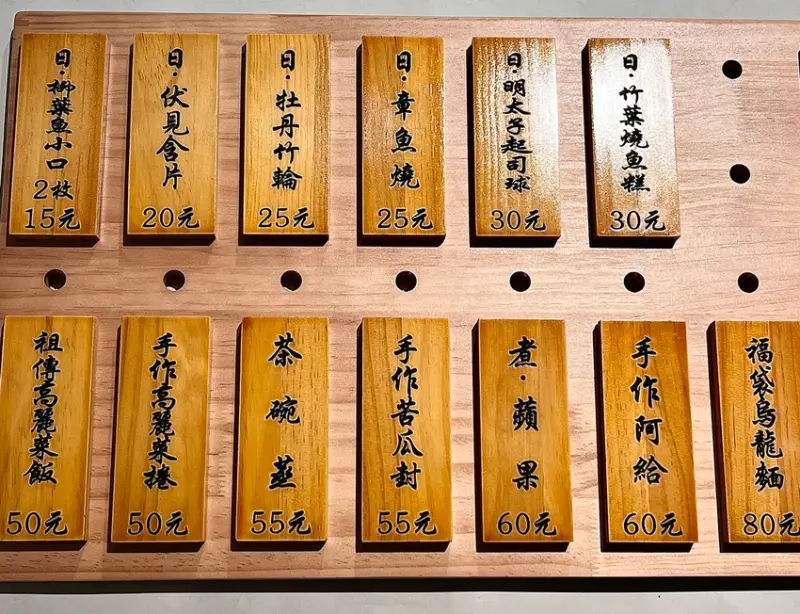 日·柳葉魚小口2枚
15元
日·伏見含片
20元
日·牡丹竹輪
25元
日·章魚燒
25元
日·明太子起司球
30元
日·竹葉燒魚糕
30元
祖傳高麗菜飯
50元
手作高麗菜捲
50元
茶碗蒸
55元
手作苦瓜封
55元
煮·蘋果
60元
手作阿給
60元
福袋烏龍麵
80元